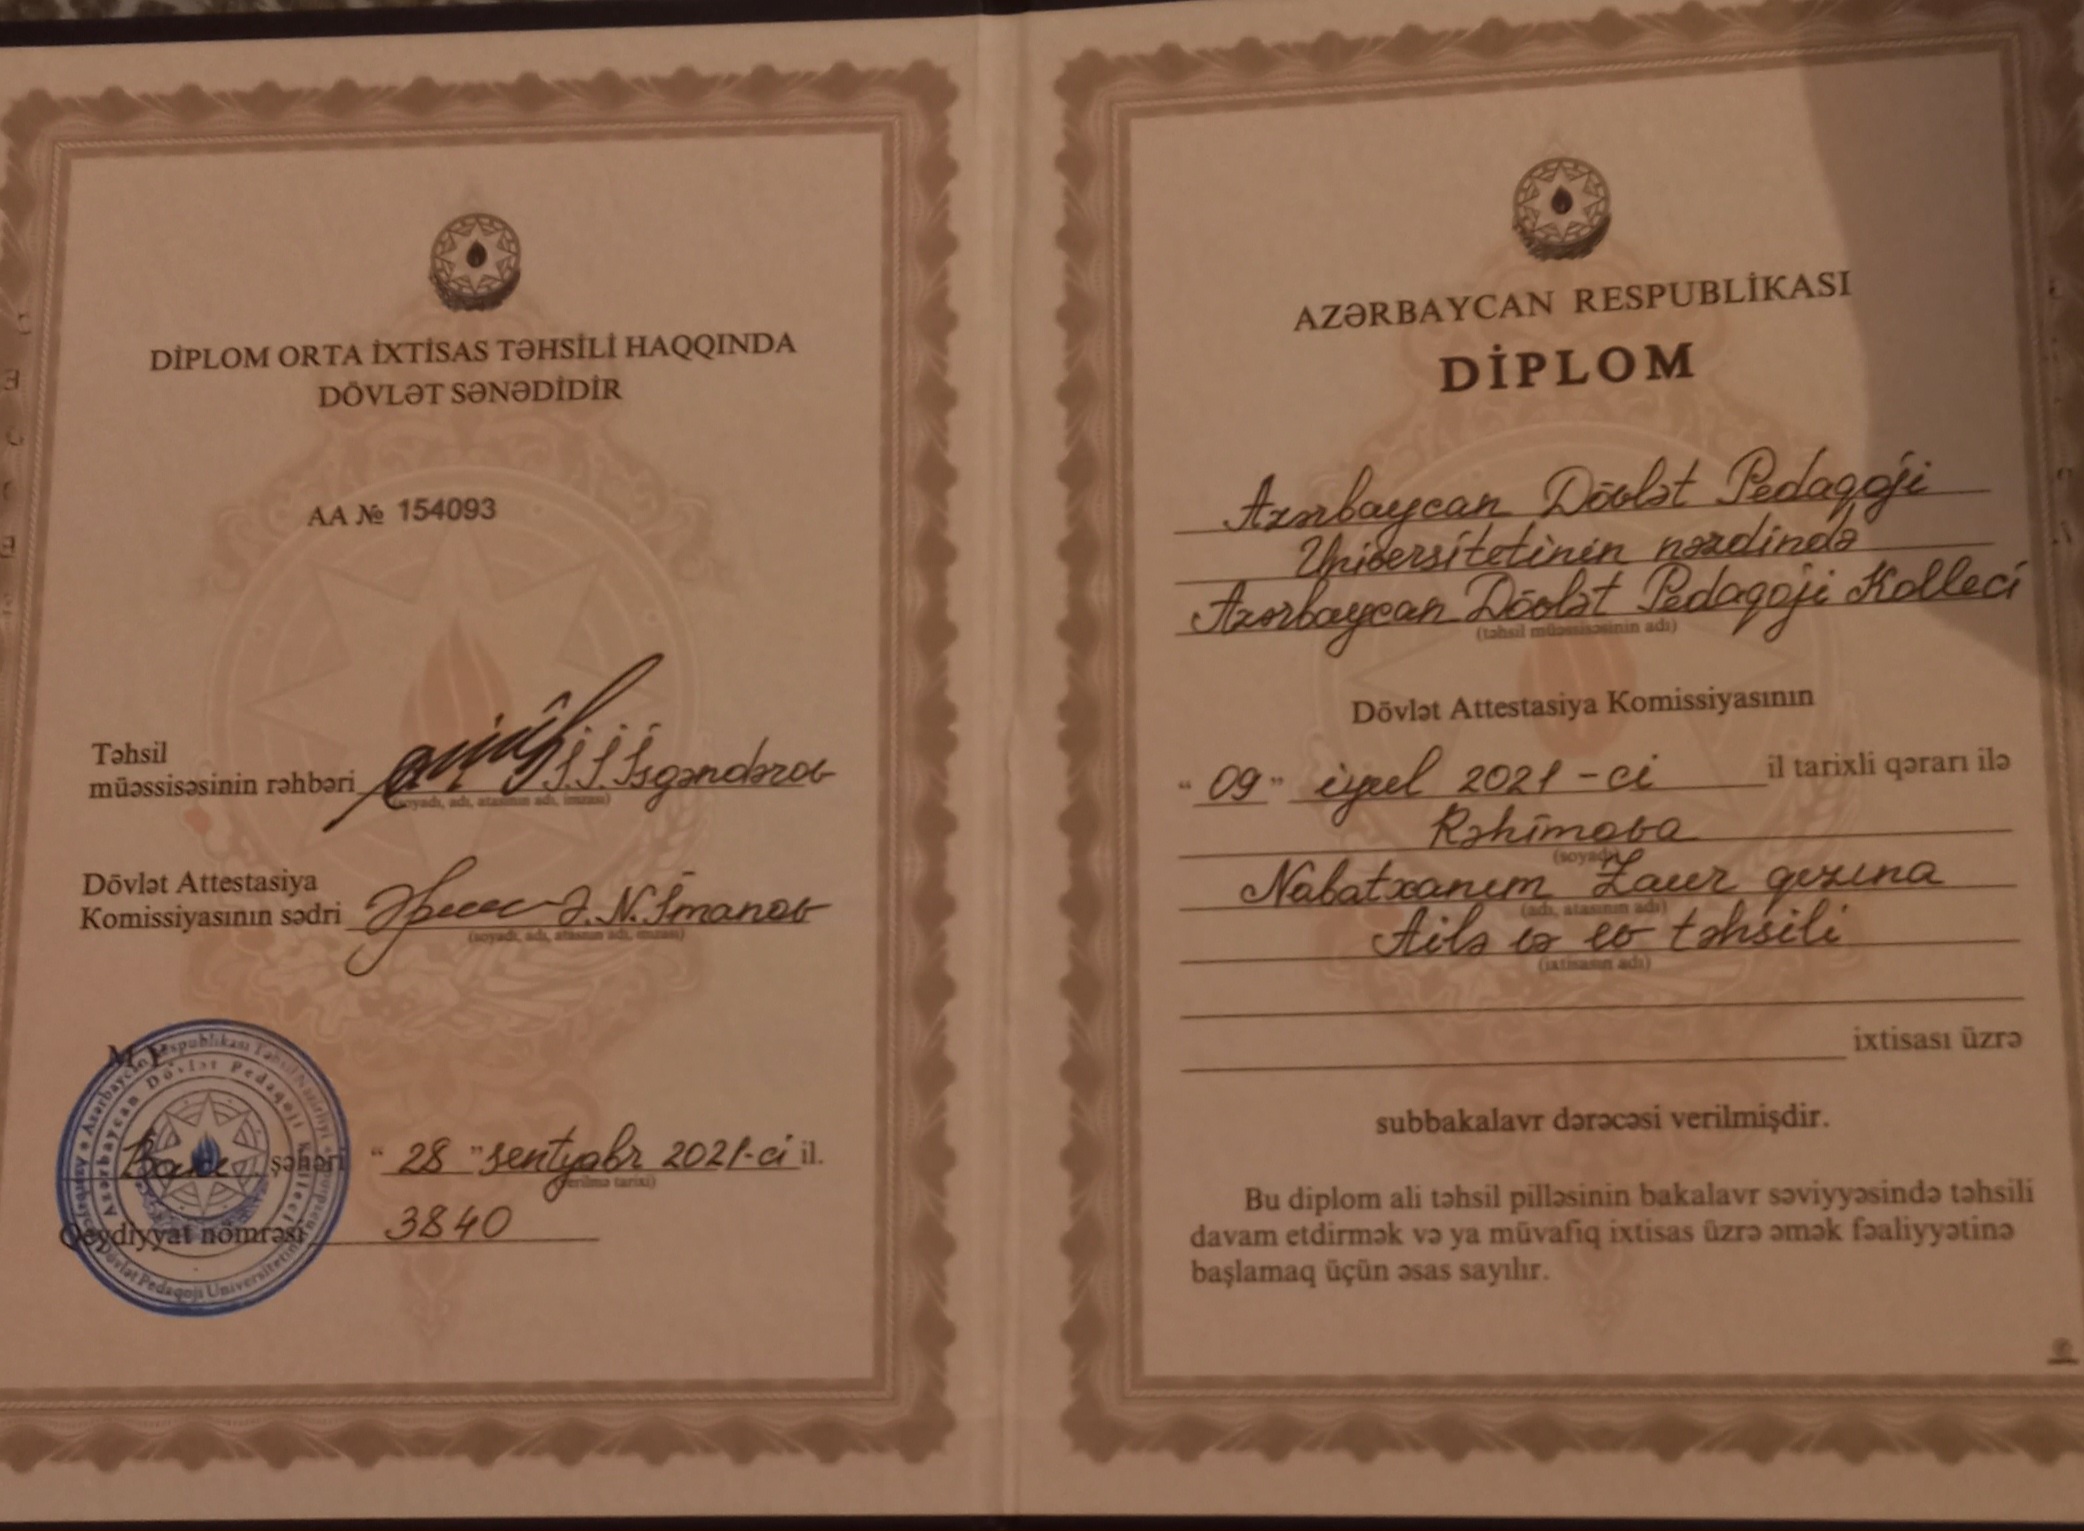 DİPLOM ORTA İXTİSAS TƏHSİLİ HAQQINDA
DÖVLƏT SƏNƏDİDİR
AA № 154093
Təhsil
müəssisəsinin rəhbəri İ.İ.İsgəndərov
(soyadı, adı, atasının adı, imzası)
Dövlət Attestasiya
Komissiyasının sədri Ə.N.İmanov
(soyadı, adı, atasının adı, imzası)
M.Y.
Bakı şəhəri “28” sentyabr 2021-ci il.
(verilmə tarixi)
Qeydiyyat nömrəsi 3840
Azərbaycan Dövlət Pedaqoji Kolleci
AZƏRBAYCAN RESPUBLİKASI
DİPLOM
Azərbaycan Dövlət Pedaqoji
Universitetinin nəzdində
Azərbaycan Dövlət Pedaqoji Kolleci
(təhsil müəssisəsinin adı)
Dövlət Attestasiya Komissiyasının
“09” iyul 2021-ci il tarixli qərarı ilə
Rəhimova
(soyadı)
Nabatxanım Zaur qızına
(adı, atasının adı)
Ailə və ev təhsili
(ixtisasın adı)
ixtisası üzrə
subbakalavr dərəcəsi verilmişdir.
Bu diplom ali təhsil pilləsinin bakalavr səviyyəsində təhsili
davam etdirmək və ya müvafiq ixtisas üzrə əmək fəaliyyətinə
başlamaq üçün əsas sayılır.